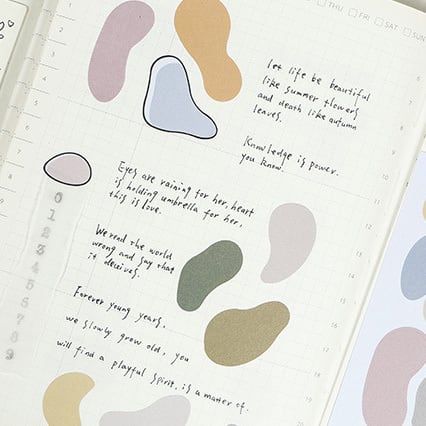 THU FRI SAT SUN
let life be beautiful
like summer flowers
and death like autumn
leaves.
Knowledge is power.
you know.
Eyes are raining for her, heart
is holding umbrella for her,
this is love.
We rend the world
wrong and say that
it deceives.
Forever young years,
we slowly grow old, you
will find a playful spirit, is a matter of.
0
1
2
3
4
5
6
7
8
9